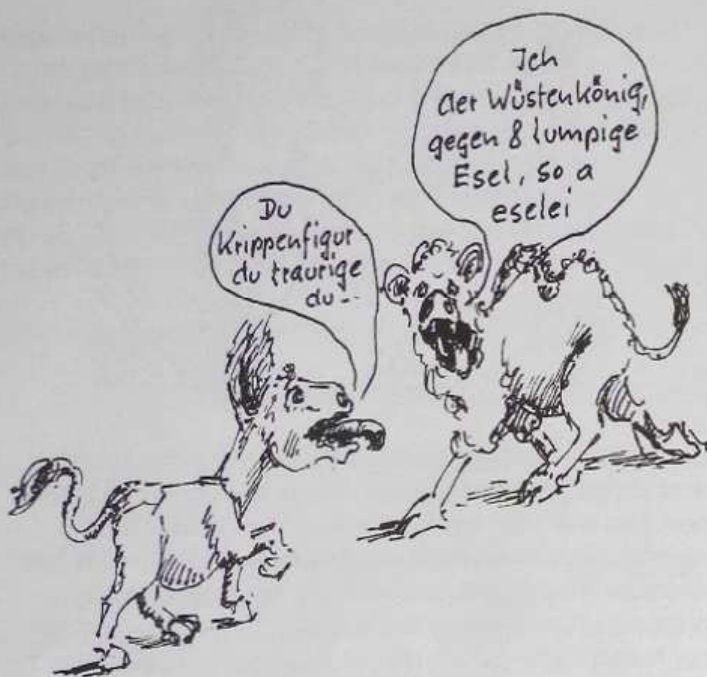 Du
Krippenfigur
du traurige
du--
Ich
der Wüstenkönig,
gegen 8 lumpige
Esel, so a
eselei